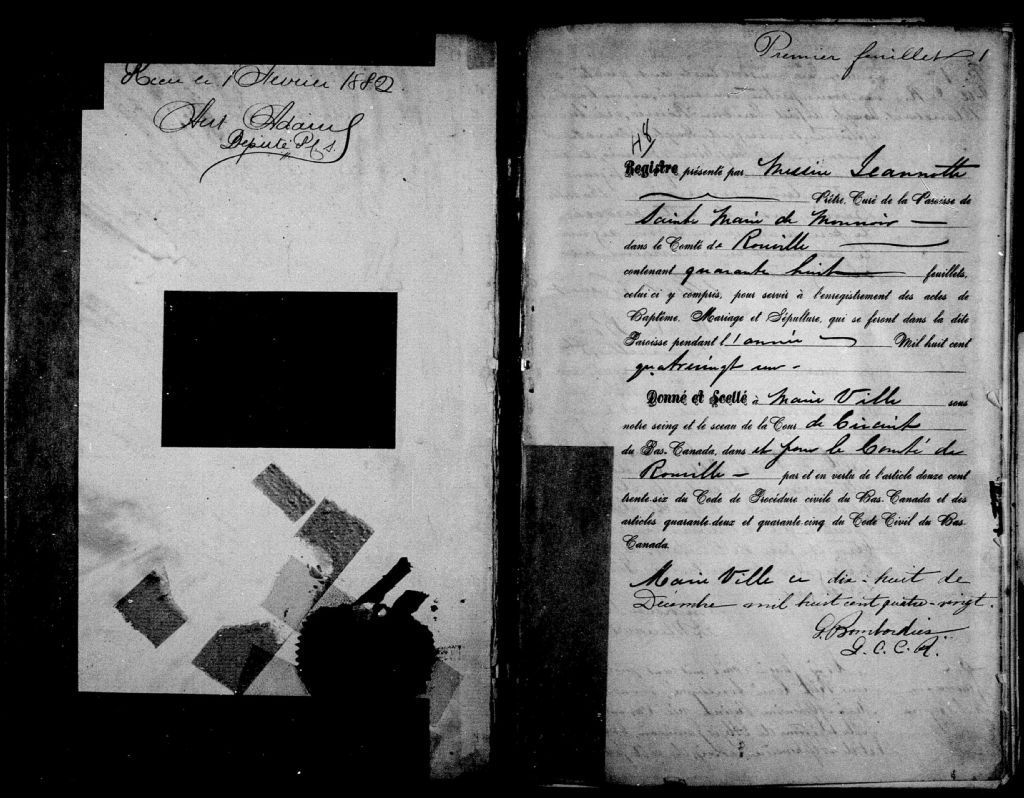 Recu ce 1 Fevrier 1882.
Hert Adam
Député P. C. S.
Premier feuillet. 1
48
Registre présenté par Messire Jeannotte
Prêtre, Curé de la Paroisse de
Sainte Marie de Monnoir
dans le Comté de Rouville
contenant quarante huit feuillets,
celui ci y compris, pour servir à l'enregistrement des actes de
Baptême, Mariage et Sépulture, qui se feront dans la dite
Paroisse pendant l'année Mil huit cent
quatrevingt un -
Donné et Scellé à Marie Ville sous
notre seing et le sceau de la Cour de Circuit
du Bas-Canada, dans et pour le Comté de
Rouville - par et en vertu de l'article douze cent
trente-six du Code de Procédure civile du Bas-Canada et des
articles quarante-deux et quarante-cinq du Code Civil du Bas-
Canada.
Marie Ville ce dix-huit de
Décembre mil huit cent quatre-vingt.
G. Bombardier
G. C. C. R.